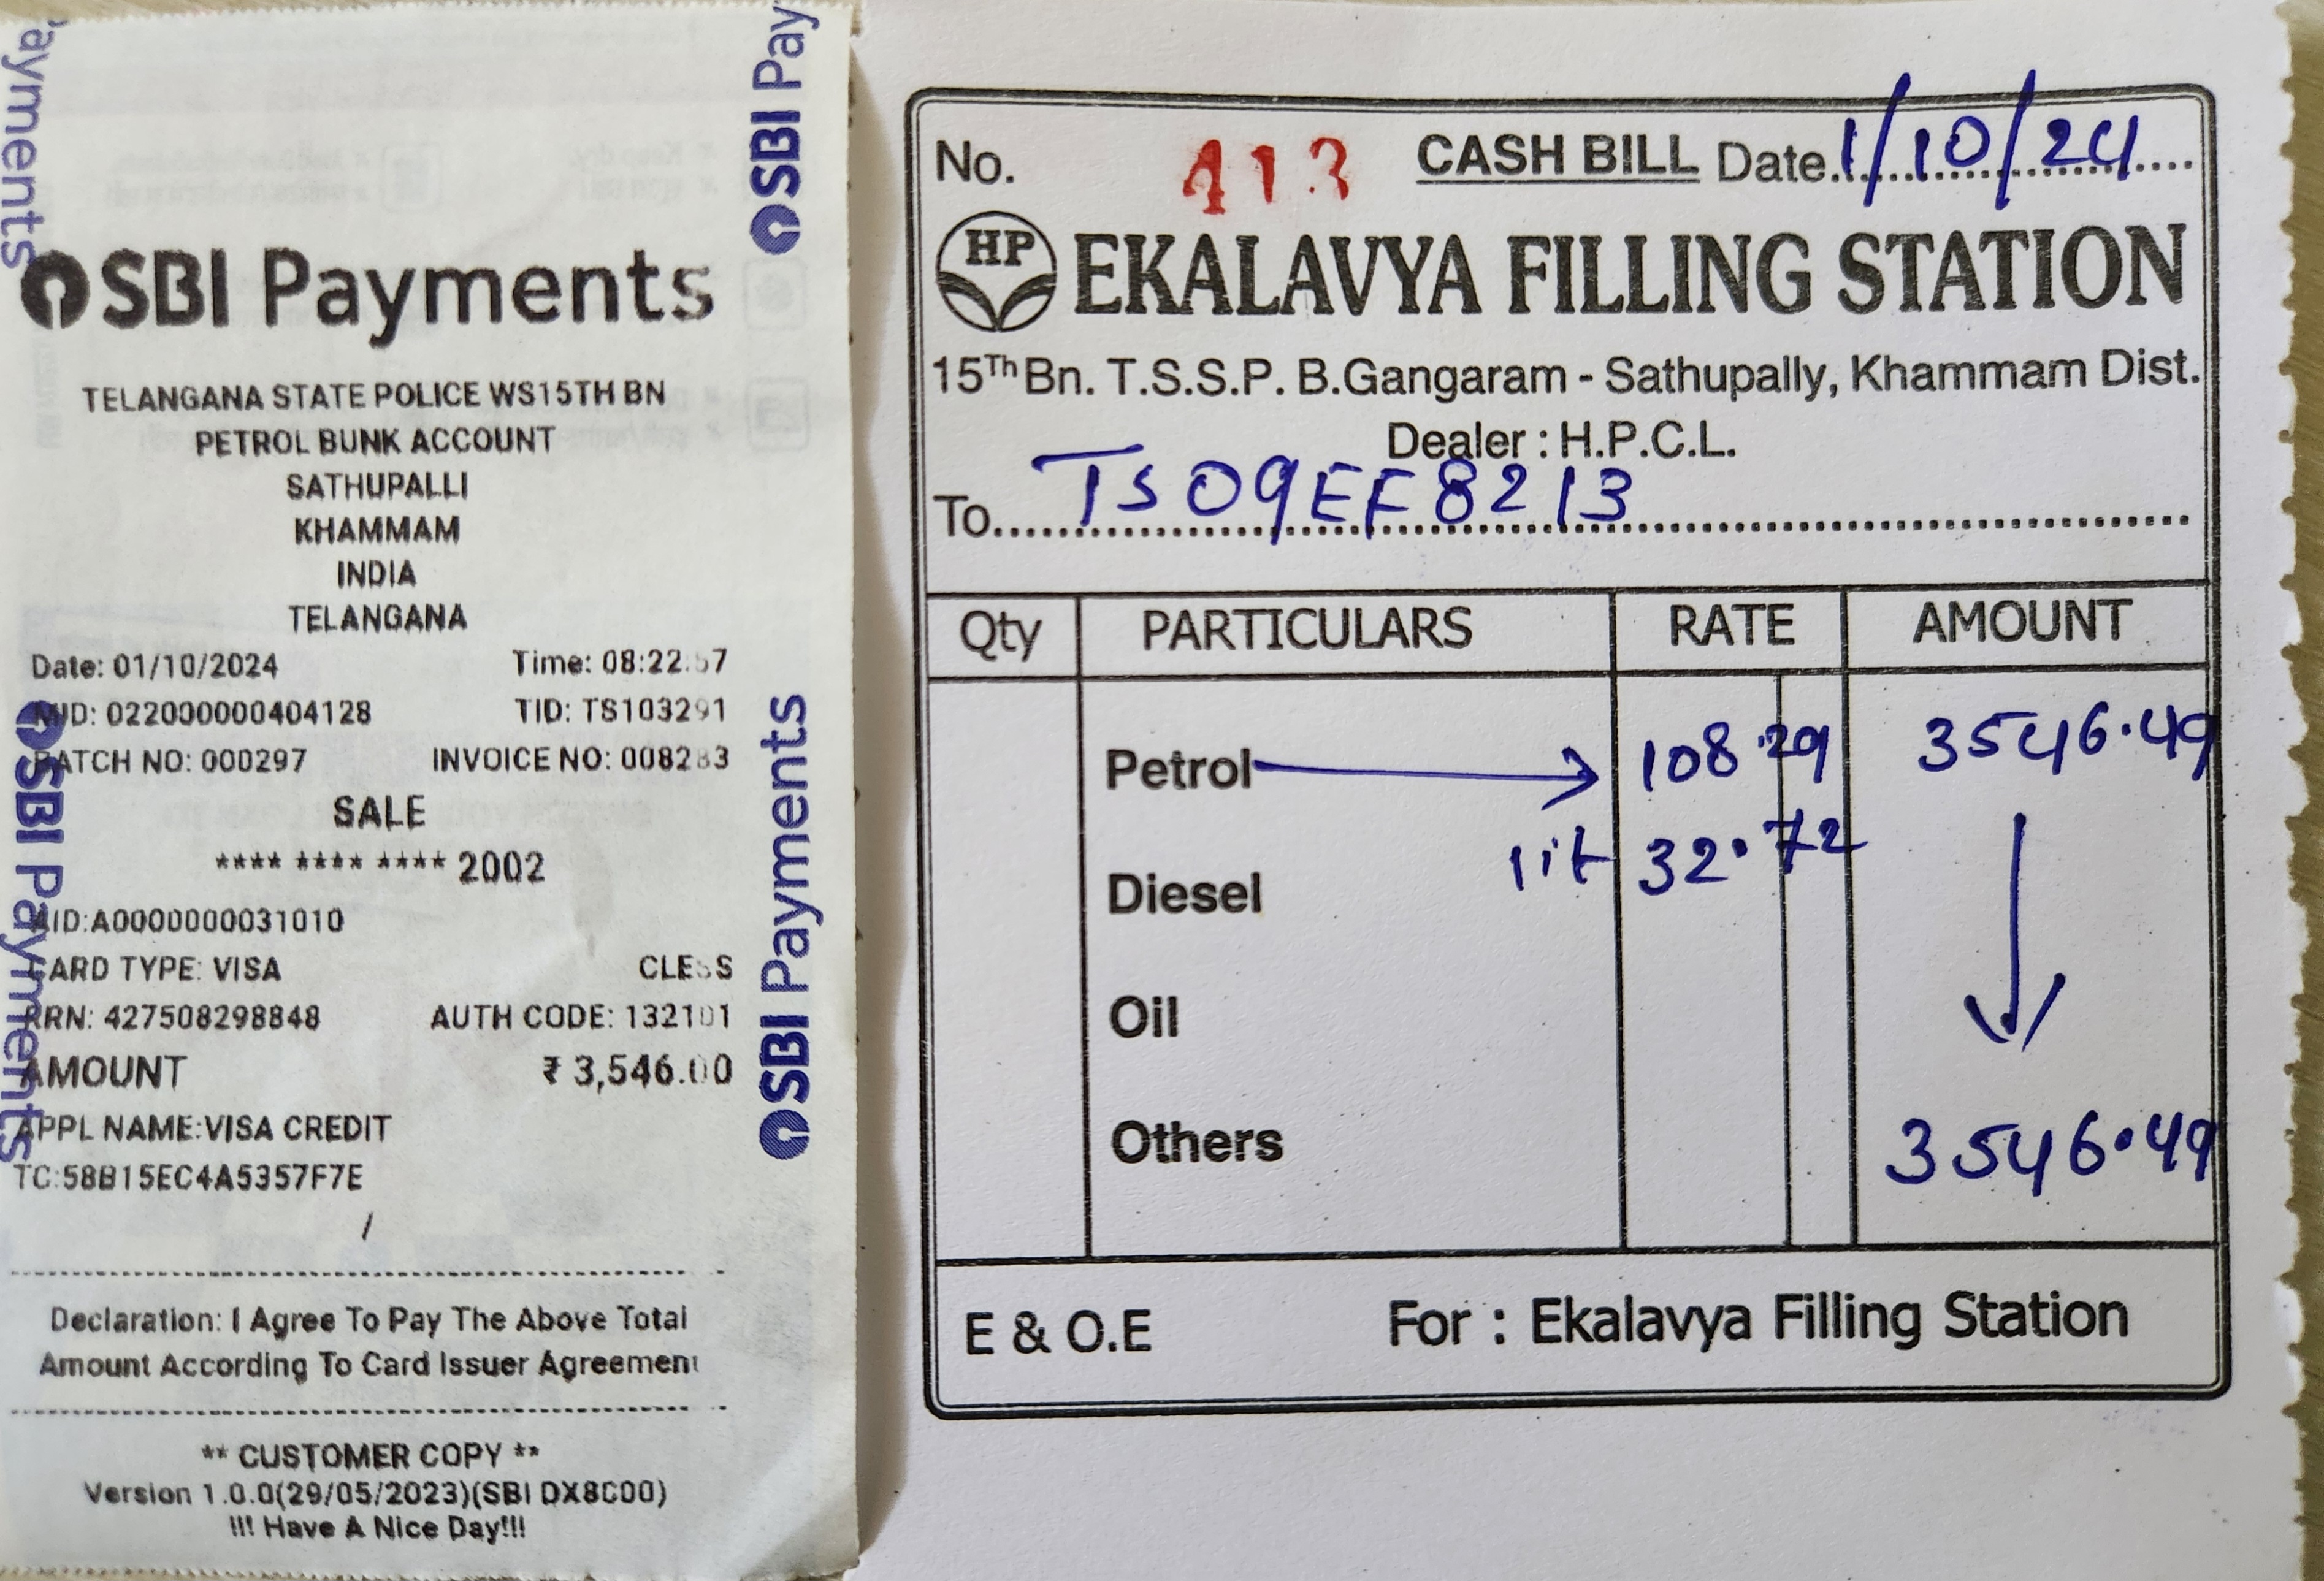 SBI Payments
TELANGANA STATE POLICE WS15TH BN
PETROL BUNK ACCOUNT
SATHUPALLI
KHAMMAM
INDIA
TELANGANA
Date: 01/10/2024 Time: 08:22:57
MID: 022000000404128 TID: TS103291
BATCH NO: 000297 INVOICE NO: 008283
SALE
**** **** **** 2002
AID:A0000000031010
CARD TYPE: VISA CLESS
RRN: 427508298848 AUTH CODE: 132101
AMOUNT ₹ 3,546.00
APPL NAME:VISA CREDIT
TC:58B15EC4A5357F7E
/
Declaration: I Agree To Pay The Above Total
Amount According To Card Issuer Agreement
** CUSTOMER COPY **
Version 1.0.0(29/05/2023)(SBI DX8000)
!!! Have A Nice Day!!!
ayments
SBI Payments
SBI Pay
SBI Payments
No. 413 CASH BILL Date 1/10/24
HP EKALAVYA FILLING STATION
15Th Bn. T.S.S.P. B.Gangaram - Sathupally, Khammam Dist.
Dealer : H.P.C.L.
To TS09EF8213
Qty PARTICULARS RATE AMOUNT
Petrol 108.29 3546.49
lit 32.72
Diesel
Oil
Others 3546.49
E & O.E For : Ekalavya Filling Station